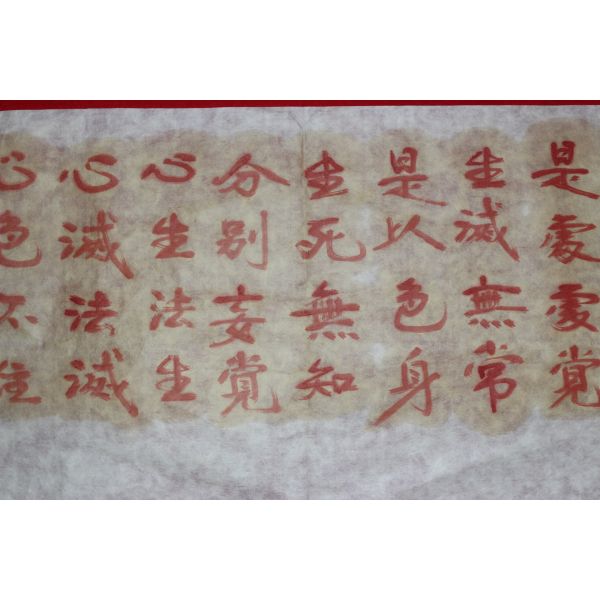 是處處覚
生滅無常
是以色身
生死無知
分別妄覚
心生法生
心滅法滅
心色不住